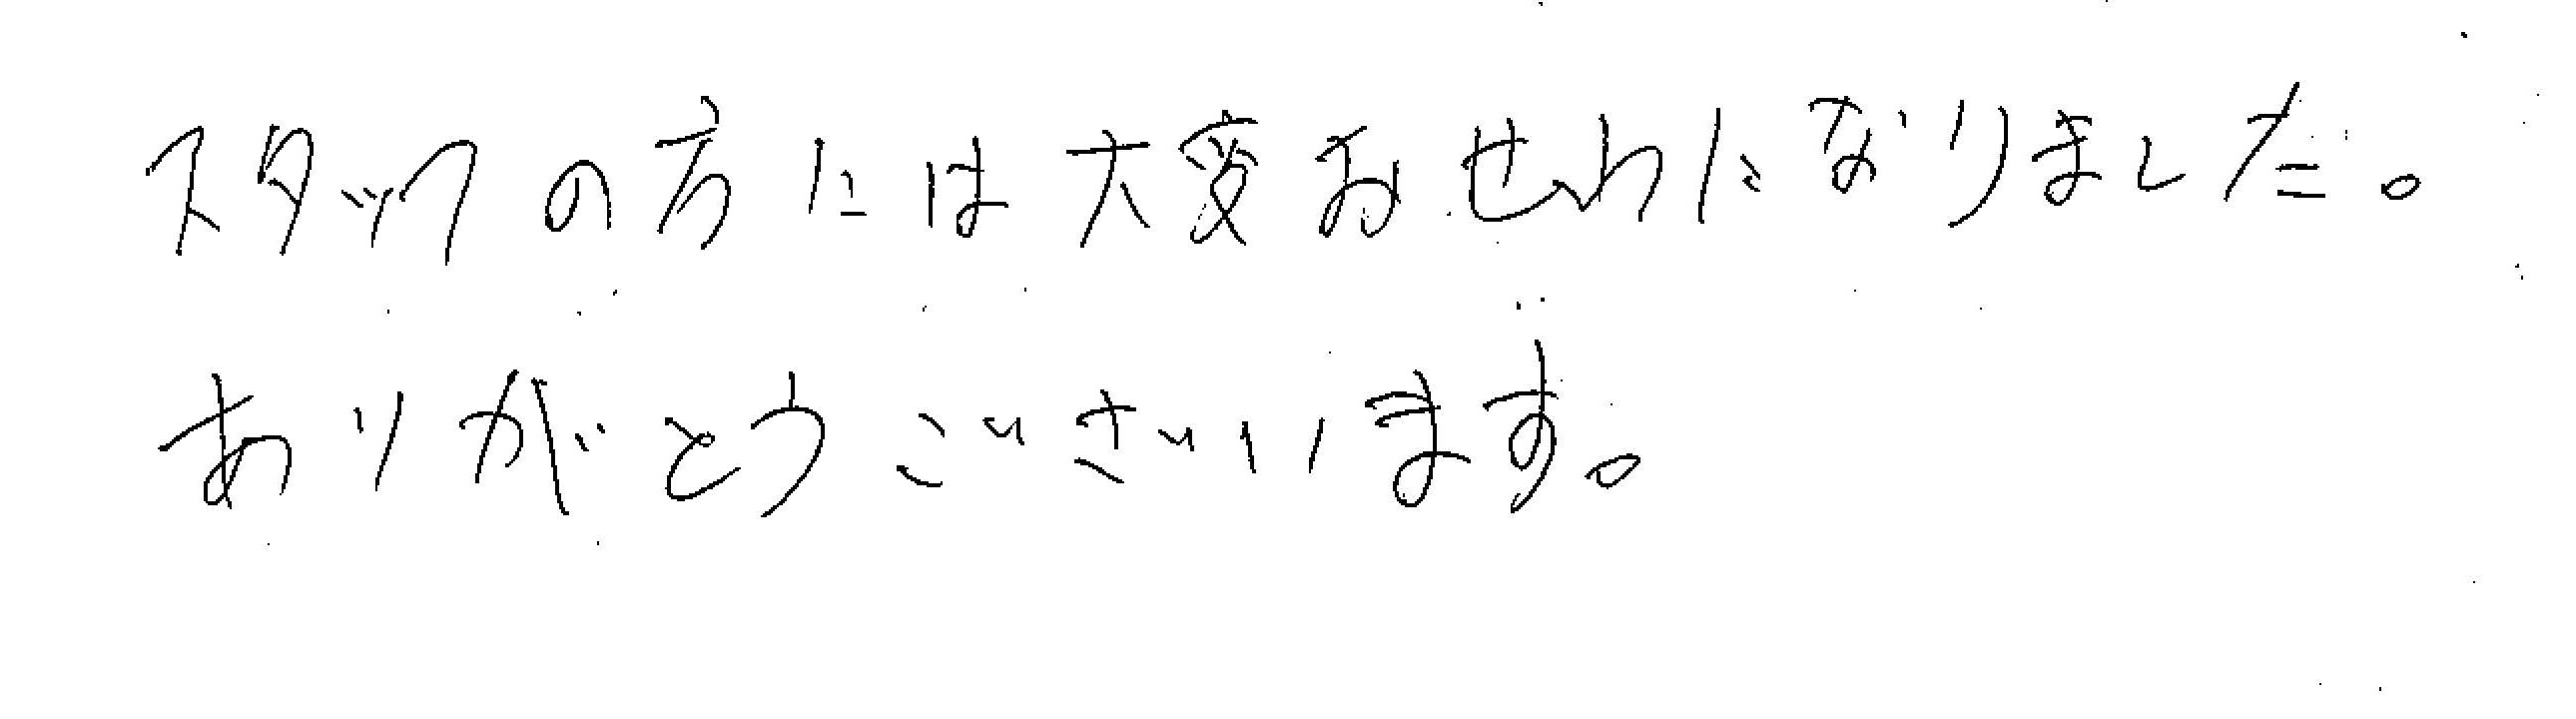 スタッフの方には大変おせわになりました。
ありがとうございます。